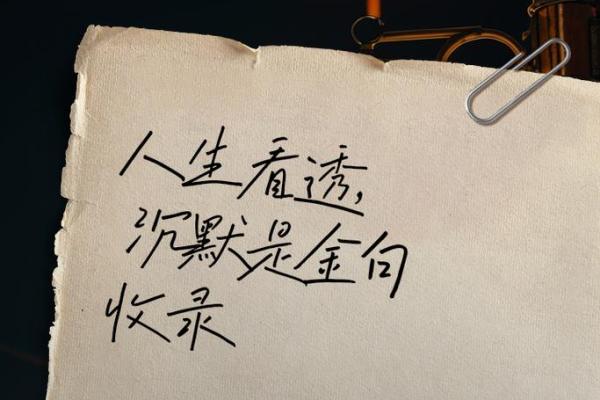 人生看透,
沉默是金句
收录